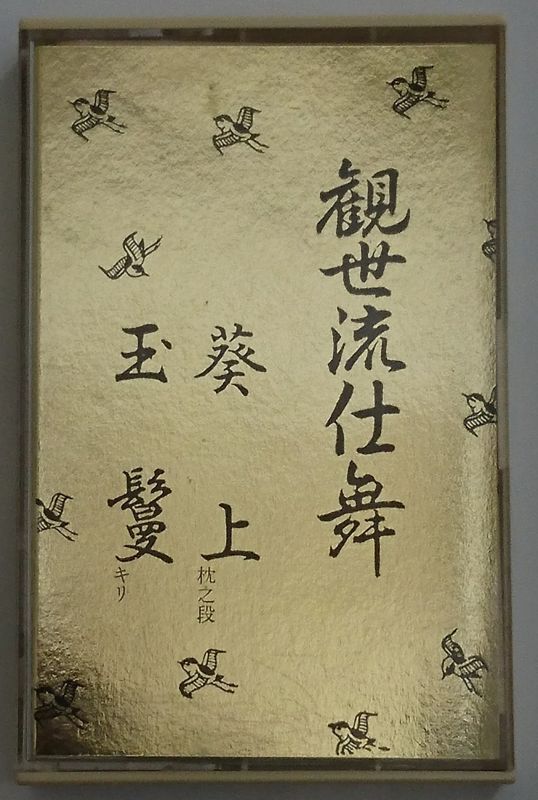 観世流仕舞
葵上 枕之段
玉鬘 キリ